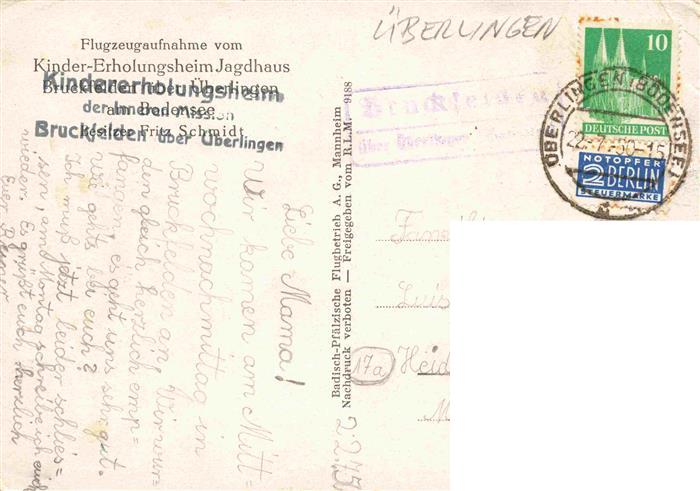 ÜBERLINGEN
Flugzeugaufnahme vom
Kinder-Erholungsheim Jagdhaus
Bruckfelden über Überlingen
am Bodensee
Besitzer Fritz Schmidt
Kindererholungsheim
der Inneren Mission
Bruckfelden über Überlingen
Liebe Mama!
Wir kamen am Mitt=
wochnachmittag in
Bruckfelden an. Wir wur=
den gleich herzlich emp=
fangen, es geht uns sehr gut.
Wie gehts bei euch?
Ich muß jetzt leider schlies=
sen, am Montag schreibe ich euch
wieder. Es grüßt euch herzlich
Euer
Badisch-Pfälzische Flugbetrieb A. G., Mannheim
Nachdruck verboten — Freigegeben vom R.L.M. 9188
Bruckfelden
über Überlingen
10
DEUTSCHE POST
NOTOPFER
2 BERLIN
STEUERMARKE
ÜBERLINGEN (BODENSEE)
Luis
17a Heid
2275